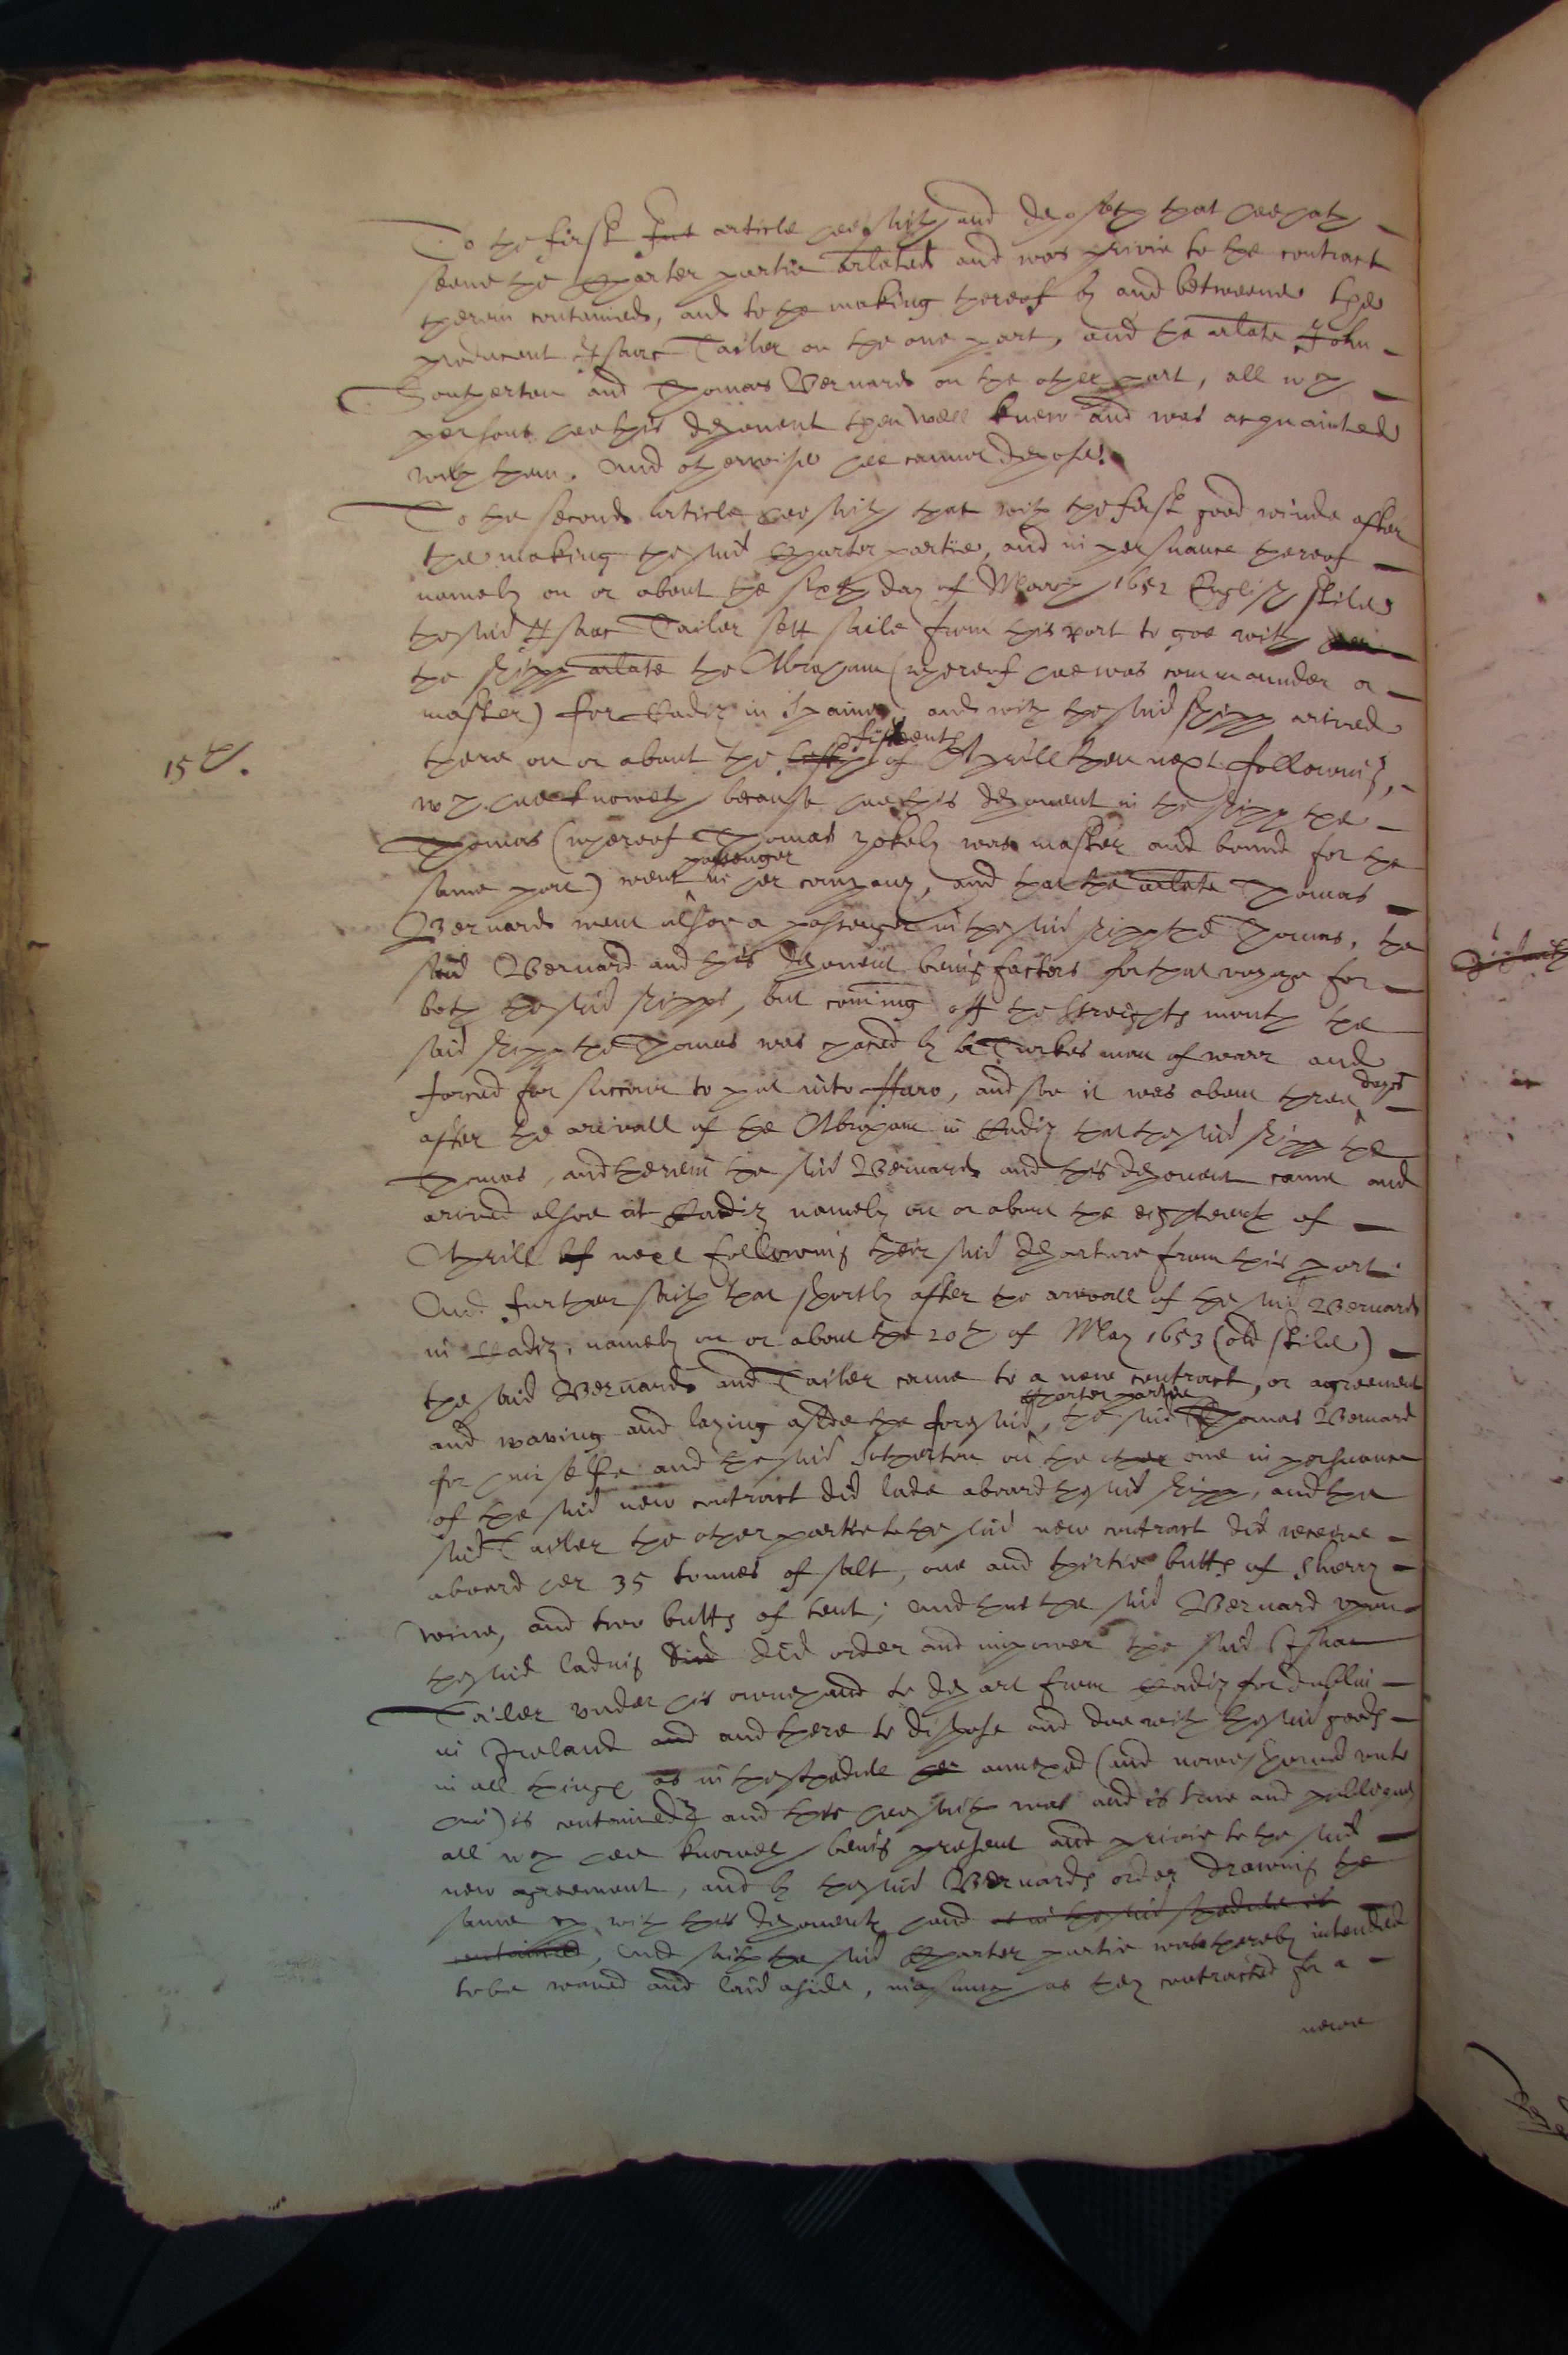 To the first Int article hee saith and deposeth that hee hath
seene the Charter partie arlated and was privie to the contract
therein contained, and to the making thereof by and betweene the
producent Isaac Tailer on the one part, and the arlate John
Southerton and Thomas Bernard on the other part, all wch
persons hee this deponent then well knew and was acquainted
with them. And otherwise hee cannot depose.
To the second article hee saith that with the first good winde after
the making the said Charter partie, and in persuance thereof
namely on or about the sixth day of March 1652 English stile
the said Isaac Tailer sett saile from this port to goe with
the shipp arlate the Abraham (whereof hee was commander or
master) for Cadiz in Spaine, and with the said shipp arived
fifteenth
15th.
there on or about the of Aprill then next following,
wch hee knoweth because hee this deponent in the shipp the
Thomas (whereof Thomas was master and bound for the
passenger
same port) went in her company, and that the arlate Thomas
Bernard went alsoe a passenger in the said shipp the Thomas, the
said Bernard and this deponent being factors for that voyage for
both the said shipps, but coming off the streights mouth the
said shipp the Thomas was chaced by a Turkes man of warr and
forced for succour to put into Faro, and soe it was about three days
after the arivall of the Abraham in Cadiz that the said shipp the
Thomas, and therein the said Bernard and this deponent came and
arived alsoe at Cadiz namely on or about the eighteenth of
Aprill of next following their said departure from this port.
And further saith that shortly after the arivall of the said Bernard
in Cadiz, namely on or about the 20th of May 1653 (old stile)
the said Bernard and Tailer came to a new contract, or agreement
charter partie
and waving and laying aside the foresaid, the said Thomas Bernard
for himselfe and the said Sotherton on the other one in persuance
of the said new contract did lade aboard the said shipp, and the
said Tailer the other partie to the said new contract did receive
aboard her 35 tonnes of salt, one and thirtie butts of sherry
wine, and two butts of tent; and that the said Bernard upon
the said lading did did order and impower the said Isaac
Tailer under his owne hand to depart from Cadiz for dublin
in Ireland and and there to dispose and doe with the said goods
in all things as in the schedule annexed (and nowe shewed unto
him) is contained, and this hee saith was and is true and publique
all wch hee knoweth being present and privie to the said
new agreement, and by the said Bernards order drawing the
same up with this deponents hand as in the said schedule is
contained, and saith the said Charter partie was thereby intended
to be waved and laid aside, inasmuch as they contracted for a
newe